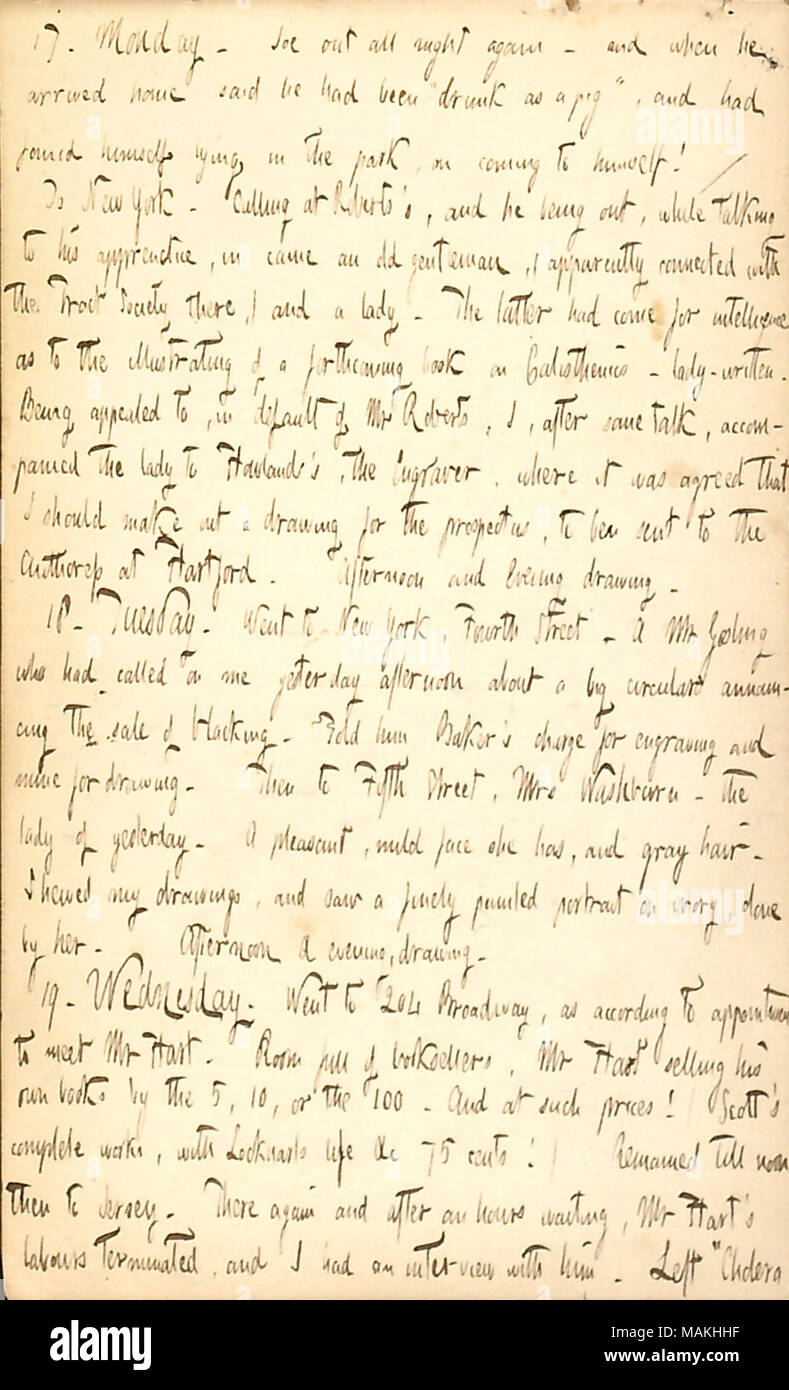 17. Monday. Joe out all night again - and when he
arrived home said he had been "drunk as a pig", and had
found himself lying in the park, on coming to himself!
To New York. Calling at Roberts's, and he being out, while talking
to his apprentice, in came an old gentleman, (apparently connected with
the Tract Society there,) and a lady. The latter had come for intelligence
as to the illustrating of a forthcoming book on Calisthenics - lady-written.
Being appealed to, in default of Mr Roberts, I, after some talk, accom-
panied the lady to Howland's, the Engraver, where it was agreed that
I should make out a drawing for the prospectus, to ben sent to the
Authoress at Hartford. Afternoon and Evening drawing.
18. Tuesday. Went to New York, Fourth Street. A Mr Gosling
who had called on me yesterday afternoon about a big circulars announ-
cing the sale of blacking. Told him Baker's charge for engraving and
mine for drawing. Then to Fifth Street, Mrs Washburn - the
lady of yesterday. A pleasant, mild face she has, and gray hair.
Shewed my drawings, and saw a finely painted portrait on ivory, done
by her. Afternoon & evening, drawing.
19. Wednesday. Went to 204 Broadway, as according to appointment
to meet Mr Hart. Room full of booksellers, Mr Hart selling his
own books by the 5, 10, or the 100. And at such prices! Scott's
complete works, with Lockharts life &c 75 cents! Remained till noon
then to Jersey. There again and after an hours waiting, Mr Hart's
labours terminated, and I had an interview with him. Left "Cholera
alamy
alamy
alamy
Image ID: MAKHHF
www.alamy.com